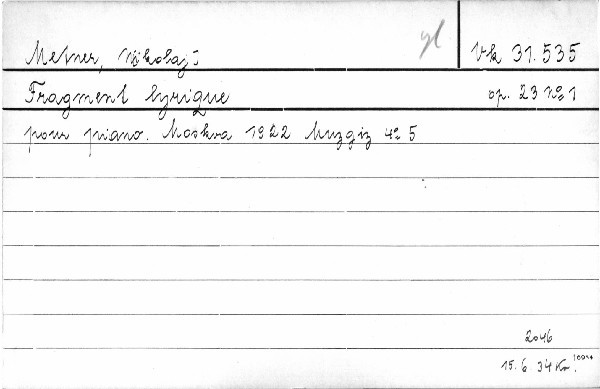 yl
Metner, Nikolaj Vk 31.535
Fragment lyrique op. 23 No 1
pour piano. Moskva 1922 Muzgiz 4º 5
2046
15.6 34 Kr.